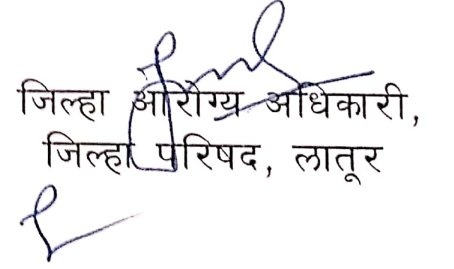 जिल्हा आरोग्य अधिकारी,
जिल्हा परिषद, लातूर